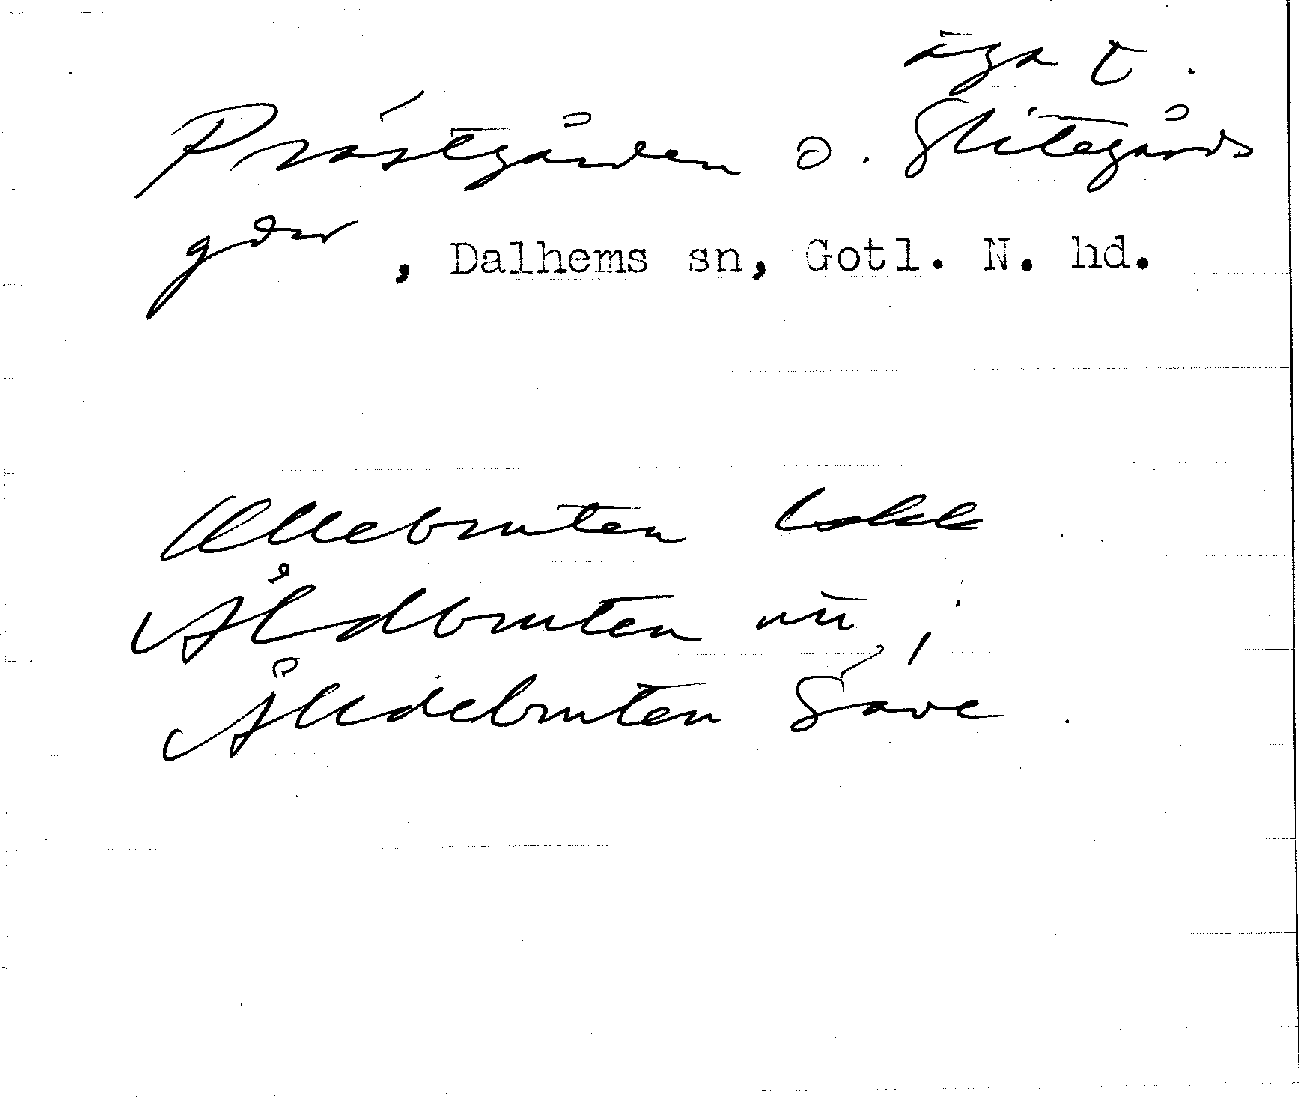 äga t.
Prästgården o. Slitegårds
gdr, Dalhems sn, Gotl. N. hd.
Ållebruten
Åldbruten nu;
Ålldebruten Säve